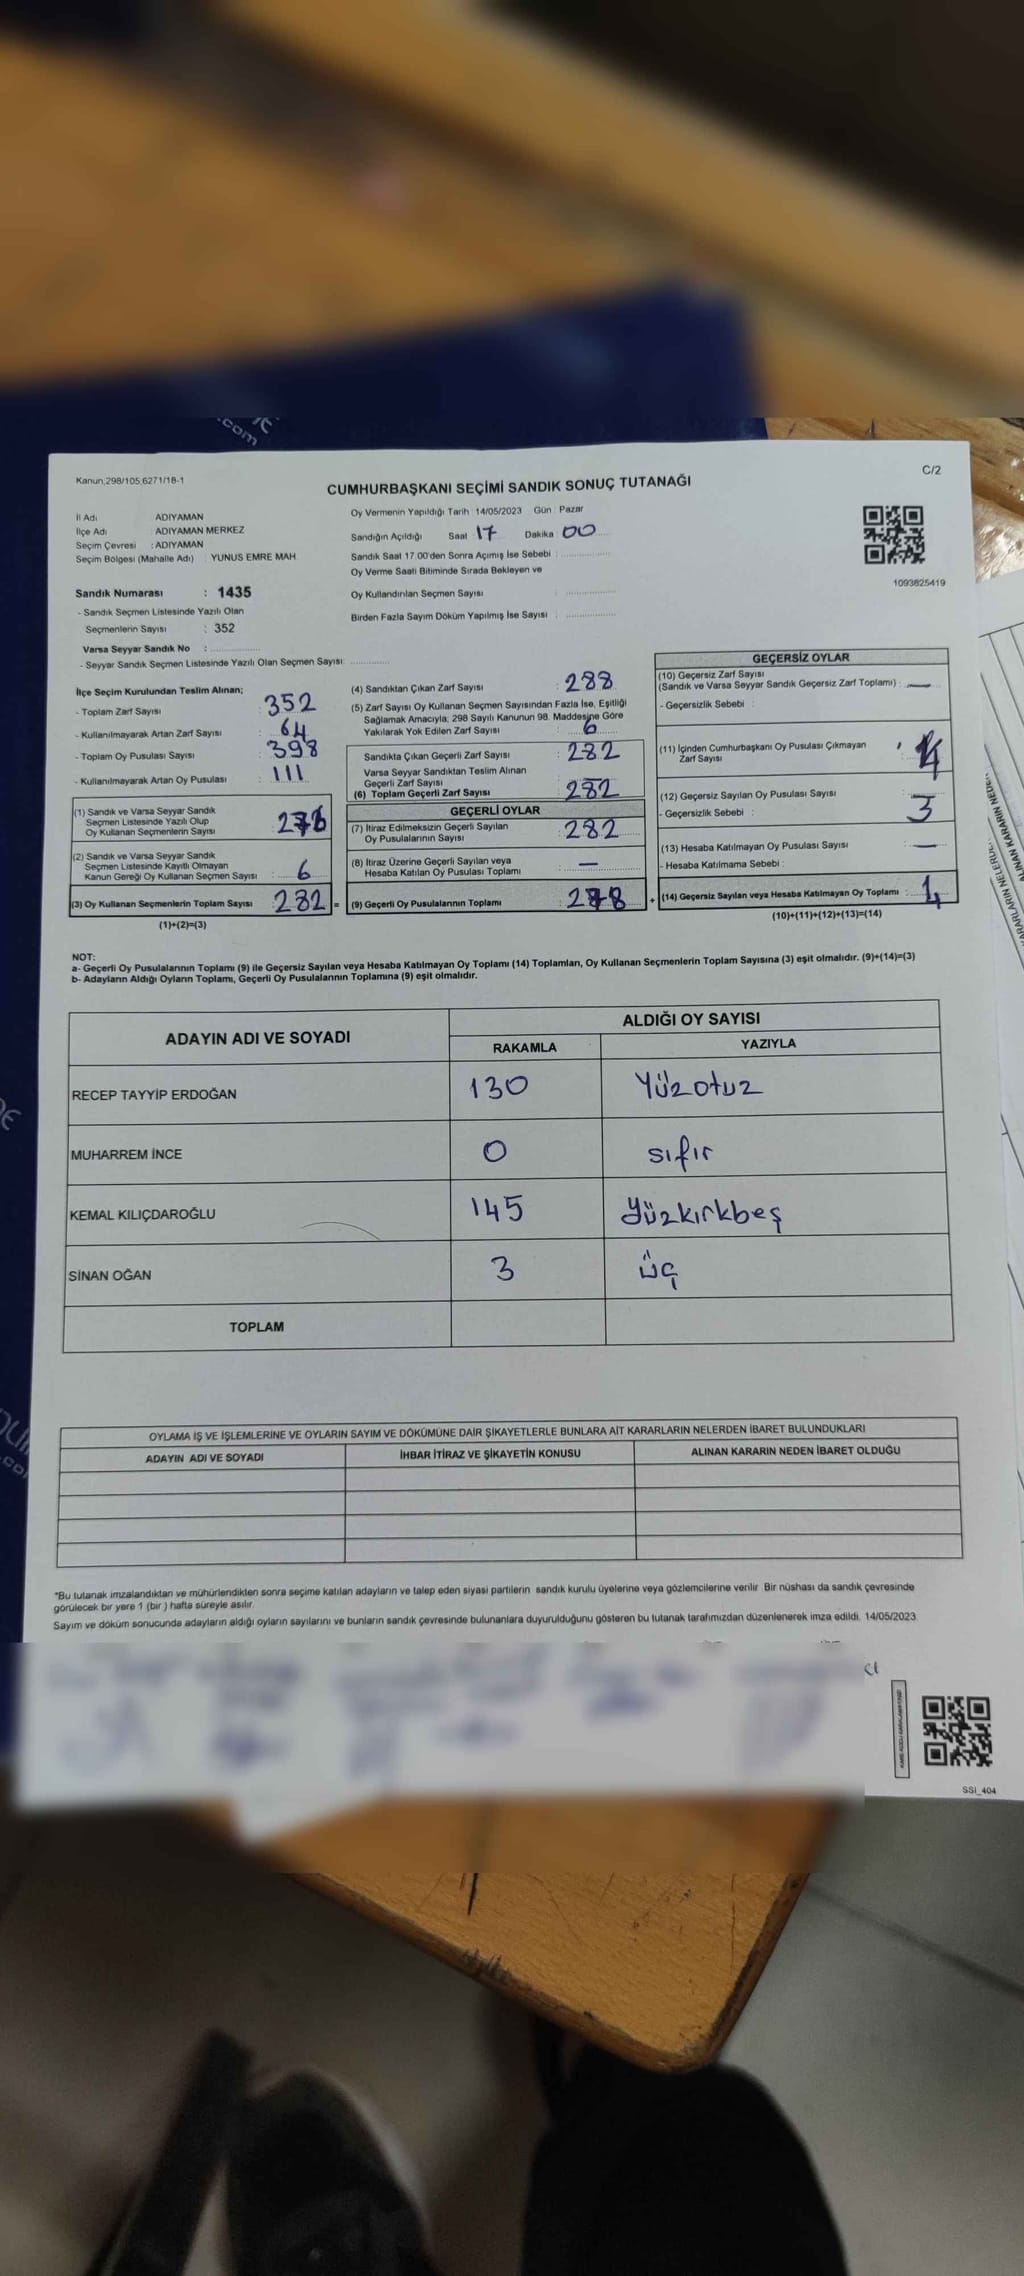 .com
Kanun;298/105,6271/18-1
C/2
CUMHURBAŞKANI SEÇİMİ SANDIK SONUÇ TUTANAĞI
İl Adı ADIYAMAN
İlçe Adı ADIYAMAN MERKEZ
Seçim Çevresi : ADIYAMAN
Seçim Bölgesi (Mahalle Adı) : YUNUS EMRE MAH.
Sandık Numarası : 1435
- Sandık Seçmen Listesinde Yazılı Olan
Seçmenlerin Sayısı : 352
Varsa Seyyar Sandık No :
- Seyyar Sandık Seçmen Listesinde Yazılı Olan Seçmen Sayısı:
Oy Vermenin Yapıldığı Tarih : 14/05/2023 Gün : Pazar
Sandığın Açıldığı Saat : 17 Dakika : 00
Sandık Saat 17.00'den Sonra Açımış İse Sebebi :
Oy Verme Saati Bitiminde Sırada Bekleyen ve
Oy Kullandırılan Seçmen Sayısı :
Birden Fazla Sayım Döküm Yapılmış İse Sayısı :
1093625419
İlçe Seçim Kurulundan Teslim Alınan;
- Toplam Zarf Sayısı : 352
- Kullanılmayarak Artan Zarf Sayısı : 64
- Toplam Oy Pusulası Sayısı : 398
- Kullanılmayarak Artan Oy Pusulası : 111
(1) Sandık ve Varsa Seyyar Sandık
Seçmen Listesinde Yazılı Olup
Oy Kullanan Seçmenlerin Sayısı : 276
(2) Sandık ve Varsa Seyyar Sandık
Seçmen Listesinde Kayıtlı Olmayan
Kanun Gereği Oy Kullanan Seçmen Sayısı : 6
(3) Oy Kullanan Seçmenlerin Toplam Sayısı 282 =
(1)+(2)=(3)
(4) Sandıktan Çıkan Zarf Sayısı : 288
(5) Zarf Sayısı Oy Kullanan Seçmen Sayısından Fazla İse, Eşitliği
Sağlamak Amacıyla; 298 Sayılı Kanunun 98. Maddesine Göre
Yakılarak Yok Edilen Zarf Sayısı : 6
Sandıkta Çıkan Geçerli Zarf Sayısı : 282
Varsa Seyyar Sandıktan Teslim Alınan
Geçerli Zarf Sayısı : —
(6) Toplam Geçerli Zarf Sayısı 282
GEÇERLİ OYLAR
(7) İtiraz Edilmeksizin Geçerli Sayılan
Oy Pusulalarının Sayısı : 282
(8) İtiraz Üzerine Geçerli Sayılan veya
Hesaba Katılan Oy Pusulası Toplamı : —
(9) Geçerli Oy Pusulalarının Toplamı : 278 +
GEÇERSİZ OYLAR
(10) Geçersiz Zarf Sayısı
(Sandık ve Varsa Seyyar Sandık Geçersiz Zarf Toplamı) : —
- Geçersizlik Sebebi :
(11) İçinden Cumhurbaşkanı Oy Pusulası Çıkmayan
Zarf Sayısı :
(12) Geçersiz Sayılan Oy Pusulası Sayısı : 3
- Geçersizlik Sebebi :
(13) Hesaba Katılmayan Oy Pusulası Sayısı : —
- Hesaba Katılmama Sebebi :
(14) Geçersiz Sayılan veya Hesaba Katılmayan Oy Toplamı : 4
(10)+(11)+(12)+(13)=(14)
NOT:
a- Geçerli Oy Pusulalarının Toplamı (9) ile Geçersiz Sayılan veya Hesaba Katılmayan Oy Toplamı (14) Toplamları, Oy Kullanan Seçmenlerin Toplam Sayısına (3) eşit olmalıdır. (9)+(14)=(3)
b- Adayların Aldığı Oyların Toplamı, Geçerli Oy Pusulalarının Toplamına (9) eşit olmalıdır.
ADAYIN ADI VE SOYADI ALDIĞI OY SAYISI
RAKAMLA YAZIYLA
RECEP TAYYİP ERDOĞAN 130 Yüzotuz
MUHARREM İNCE 0 sıfır
KEMAL KILIÇDAROĞLU 145 yüzkırkbeş
SİNAN OĞAN 3 üç
TOPLAM
OYLAMA İŞ VE İŞLEMLERİNE VE OYLARIN SAYIM VE DÖKÜMÜNE DAİR ŞİKAYETLERLE BUNLARA AİT KARARLARIN NELERDEN İBARET BULUNDUKLARI
ADAYIN ADI VE SOYADI İHBAR İTİRAZ VE ŞİKAYETİN KONUSU ALINAN KARARIN NEDEN İBARET OLDUĞU
*Bu tutanak imzalandıktan ve mühürlendikten sonra seçime katılan adayların ve talep eden siyasi partilerin sandık kurulu üyelerine veya gözlemcilerine verilir. Bir nüshası da sandık çevresinde
görülecek bir yere 1 (bir ) hafta süreyle asılır.
Sayım ve döküm sonucunda adayların aldığı oyların sayılarını ve bunların sandık çevresinde bulunanlara duyurulduğunu gösteren bu tutanak tarafımızdan düzenlenerek imza edildi. 14/05/2023
SSI_404